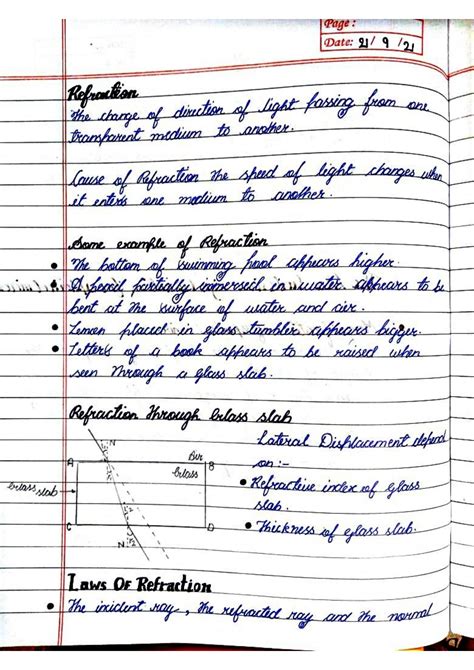 Page:
Date: 21/9/21
Refraction
The change of direction of light passing from one
transparent medium to another.
Cause of Refraction The speed of light changes when
it enters one medium to another.
Some example of Refraction
• The bottom of swimming pool appears higher.
• A pencil partially immersed in water appears to be
bent at the surface of water and air.
• Limon placed in glass tumbler appears bigger.
• Letters of a book appears to be raised when
seen through a glass slab.
Refraction through Glass slab
Lateral Displacement depend
on:-
• Refractive index of glass
slab.
• Thickness of glass slab.
N
Air
A
B
Glass
Glass slab
C
D
N
Laws Of Refraction
• The incident ray, the refracted ray and the normal